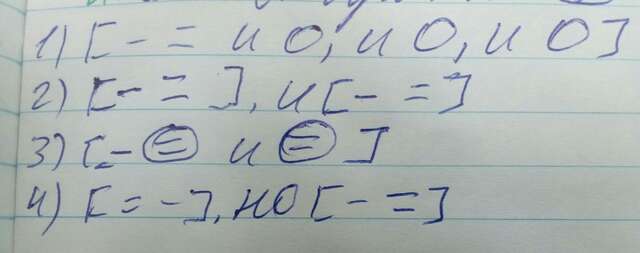 1) [- = и О, и О, и О]
2) [- =], и [- =]
3) [- = и =]
4) [= -], но [- =]